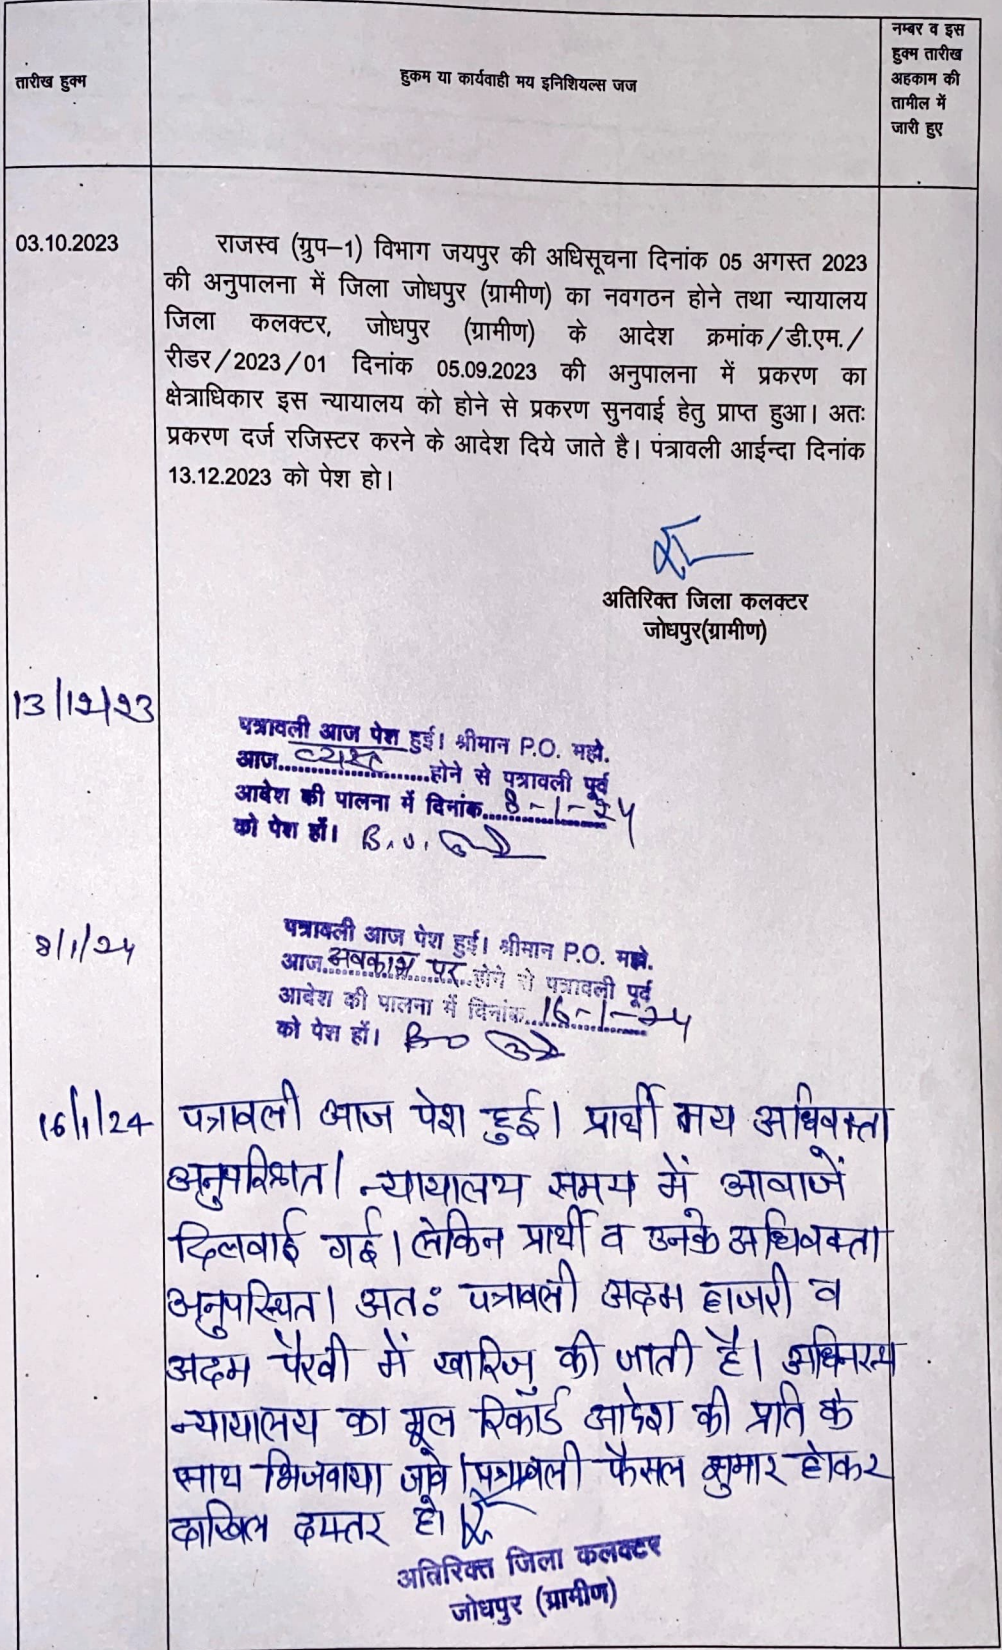 तारीख हुक्म
हुकम या कार्यवाही मय इनिशियल्स जज
नम्बर व इस
हुक्म तारीख
अहकाम की
तामील में
जारी हुए
03.10.2023
राजस्व (ग्रुप–1) विभाग जयपुर की अधिसूचना दिनांक 05 अगस्त 2023
की अनुपालना में जिला जोधपुर (ग्रामीण) का नवगठन होने तथा न्यायालय
जिला कलक्टर, जोधपुर (ग्रामीण) के आदेश क्रमांक/डी.एम./
रीडर/2023/01 दिनांक 05.09.2023 की अनुपालना में प्रकरण का
क्षेत्राधिकार इस न्यायालय को होने से प्रकरण सुनवाई हेतु प्राप्त हुआ। अतः
प्रकरण दर्ज रजिस्टर करने के आदेश दिये जाते है। पंत्रावली आईन्दा दिनांक
13.12.2023 को पेश हो।
अतिरिक्त जिला कलक्टर
जोधपुर(ग्रामीण)
13/12/23
पत्रावली आज पेश हुई। श्रीमान P.O. महो.
आज व्यस्त होने से पत्रावली पूर्व
आदेश की पालना में दिनांक 8-1-24
को पेश हों।
8/1/24
पत्रावली आज पेश हुई। श्रीमान P.O. महो.
आज अवकाश पर होने से पत्रावली पूर्व
आदेश की पालना में दिनांक 16-1-24
को पेश हों।
16/1/24 पत्रावली आज पेश हुई। प्रार्थी मय अधिवक्ता
अनुपस्थित। न्यायालय समय में आवाजें
दिलवाई गई। लेकिन प्रार्थी व उनके अधिवक्ता
अनुपस्थित। अतः पत्रावली अदम हाजरी व
अदम पैरवी में खारिज की जाती है। अधिनस्थ
न्यायालय का मूल रिकार्ड आदेश की प्रति के
साथ भिजवाया जावे। पत्रावली फैसल सुमार होकर
दाखिल दफ्तर हो।
अतिरिक्त जिला कलक्टर
जोधपुर (ग्रामीण)